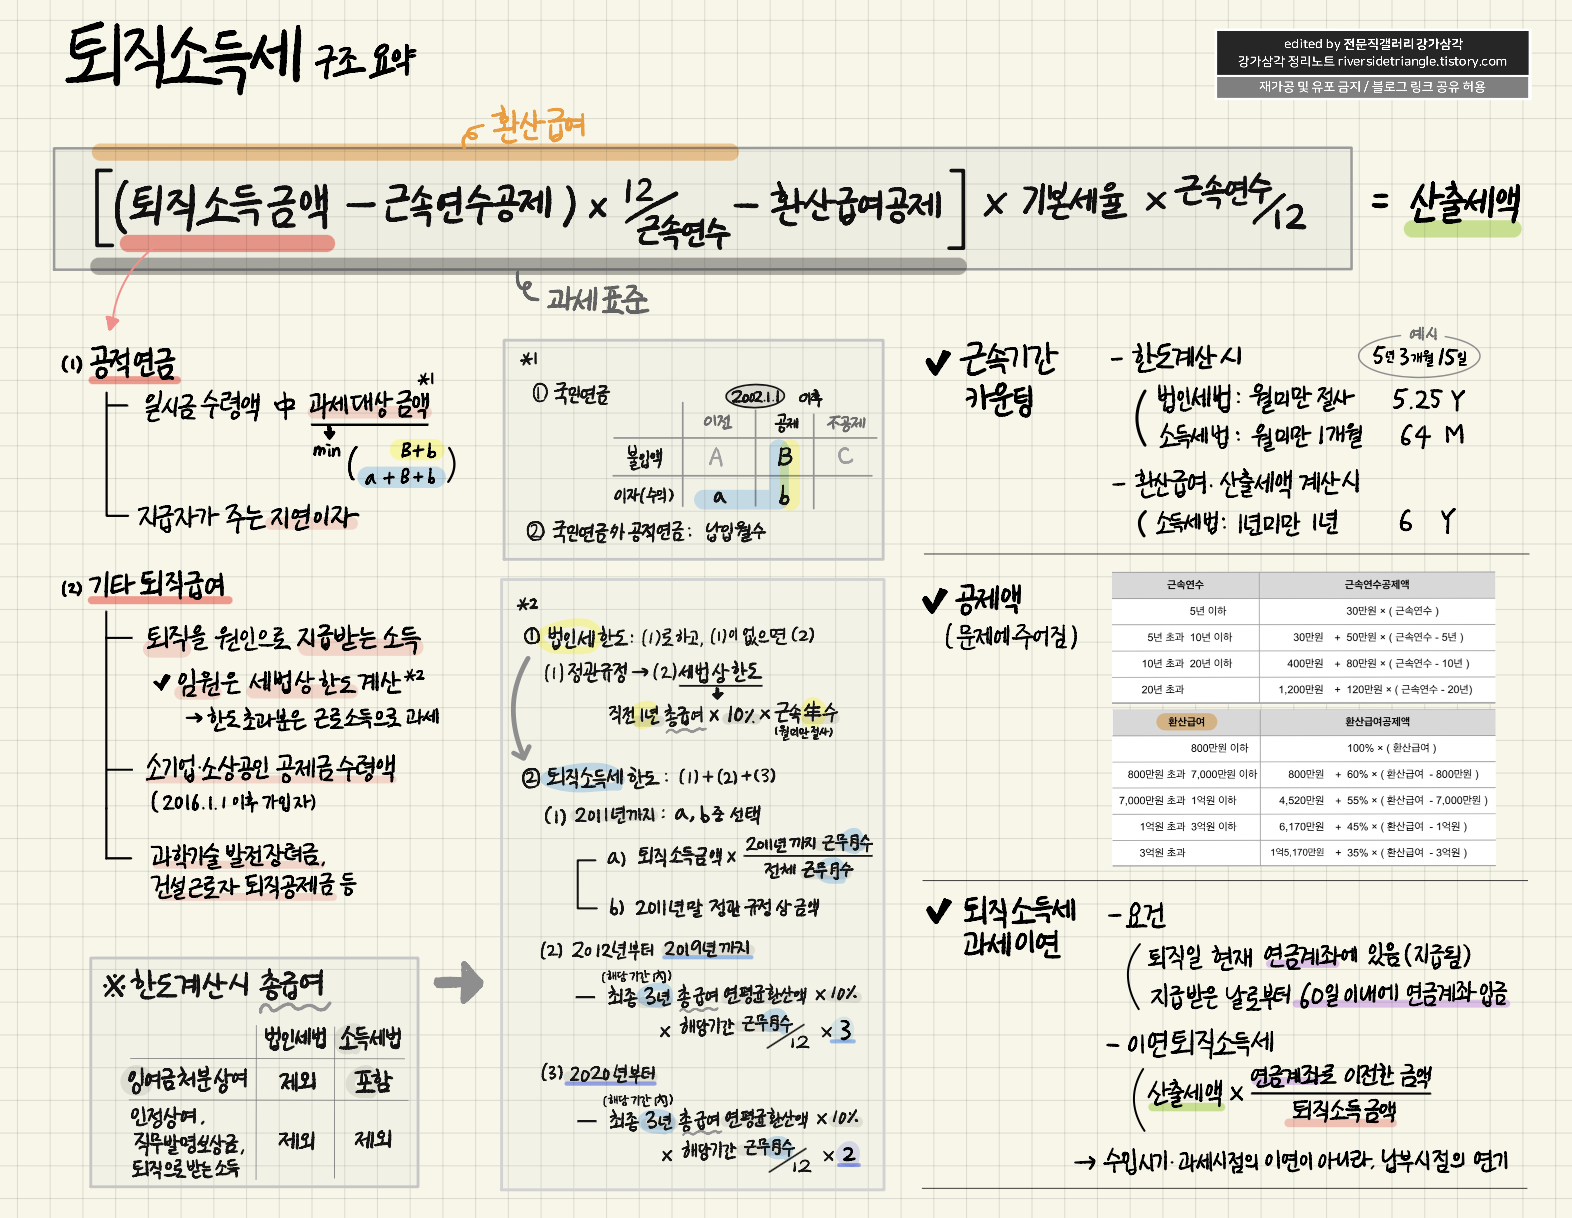 퇴직소득세 구조 요약
edited by 전문직갤러리 강가삼각
강가삼각 정리노트 riversidetriangle.tistory.com
재가공 및 유포 금지 / 블로그 링크 공유 허용
환산급여
[(퇴직소득금액 - 근속연수공제) × 12/근속연수 - 환산급여공제] × 기본세율 × 근속연수/12 = 산출세액
과세표준
(1) 공적연금
일시금 수령액 中 과세대상 금액 *1
min ( B+b
a+B+b )
지급자가 주는 지연이자
(2) 기타 퇴직급여
퇴직을 원인으로 지급받는 소득
✔ 임원은 세법상 한도계산 *2
→ 한도초과분은 근로소득으로 과세
소기업·소상공인 공제금 수령액
(2016.1.1 이후 가입자)
과학기술 발전장려금,
건설근로자 퇴직공제금 등
※ 한도계산시 총급여
법인세법 소득세법
잉여금처분상여 제외 포함
인정상여,
직무발명보상금, 제외 제외
퇴직으로 받는 소득
*1
① 국민연금
2002.1.1 이후
이전 공제 불공제
불입액 A B C
이자(수익) a b
② 국민연금外 공적연금: 납입월수
*2
① 법인세한도: (1)로 하고, (1)이 없으면 (2)
(1) 정관규정 → (2) 세법상 한도
직전 1년 총급여 × 10% × 근속年수
(월미만 절사)
② 퇴직소득세 한도: (1)+(2)+(3)
(1) 2011년까지: a, b중 선택
a) 퇴직소득금액 × 2011년까지 근무月수
전체 근무月수
b) 2011년말 정관 규정상 금액
(2) 2012년부터 2019년까지
(해당기간 內)
— 최종 3년 총급여 연평균환산액 × 10%
× 해당기간 근무月수/12 × 3
(3) 2020년부터
(해당기간 內)
— 최종 3년 총급여 연평균환산액 × 10%
× 해당기간 근무月수/12 × 2
✔ 근속기간
카운팅
- 한도계산 시
예시
5년 3개월 15일
법인세법: 월미만 절사 5.25 Y
소득세법: 월미만 1개월 64 M
- 환산급여·산출세액 계산시
( 소득세법: 1년미만 1년 6 Y
✔ 공제액
(문제에 주어짐)
근속연수 근속연수공제액
5년 이하 30만원 × ( 근속연수 )
5년 초과 10년 이하 30만원 + 50만원 × ( 근속연수 - 5년 )
10년 초과 20년 이하 400만원 + 80만원 × ( 근속연수 - 10년 )
20년 초과 1,200만원 + 120만원 × ( 근속연수 - 20년)
환산급여 환산급여공제액
800만원 이하 100% × ( 환산급여 )
800만원 초과 7,000만원 이하 800만원 + 60% × ( 환산급여 - 800만원 )
7,000만원 초과 1억원 이하 4,520만원 + 55% × ( 환산급여 - 7,000만원 )
1억원 초과 3억원 이하 6,170만원 + 45% × ( 환산급여 - 1억원 )
3억원 초과 1억5,170만원 + 35% × ( 환산급여 - 3억원 )
✔ 퇴직소득세
과세이연
- 요건
퇴직일 현재 연금계좌에 있음(지급됨)
지급받은 날로부터 60일 이내에 연금계좌 입금
- 이연퇴직소득세
산출세액 × 연금계좌로 이전한 금액
퇴직소득금액
→ 수입시기·과세시점의 이연이 아니라, 납부시점의 연기